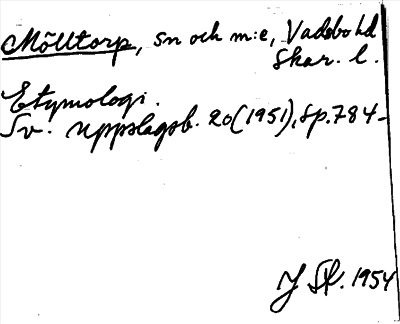 Mölltorp, sn och m:e, Vadsbo hd
Skar. l.
Etymologi.
Sv. uppslagsb. 20(1951), sp. 784-
J Sl. 1954